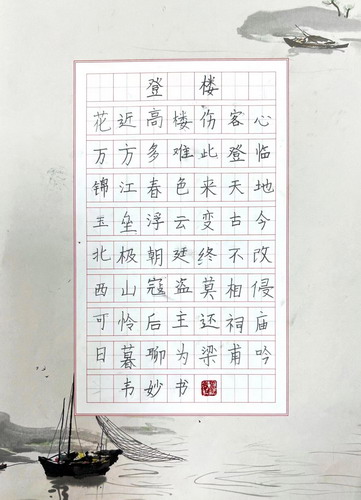 登楼
花近高楼伤客心
万方多难此登临
锦江春色来天地
玉垒浮云变古今
北极朝廷终不改
西山寇盗莫相侵
可怜后主还祠庙
日暮聊为梁甫吟
韦妙书